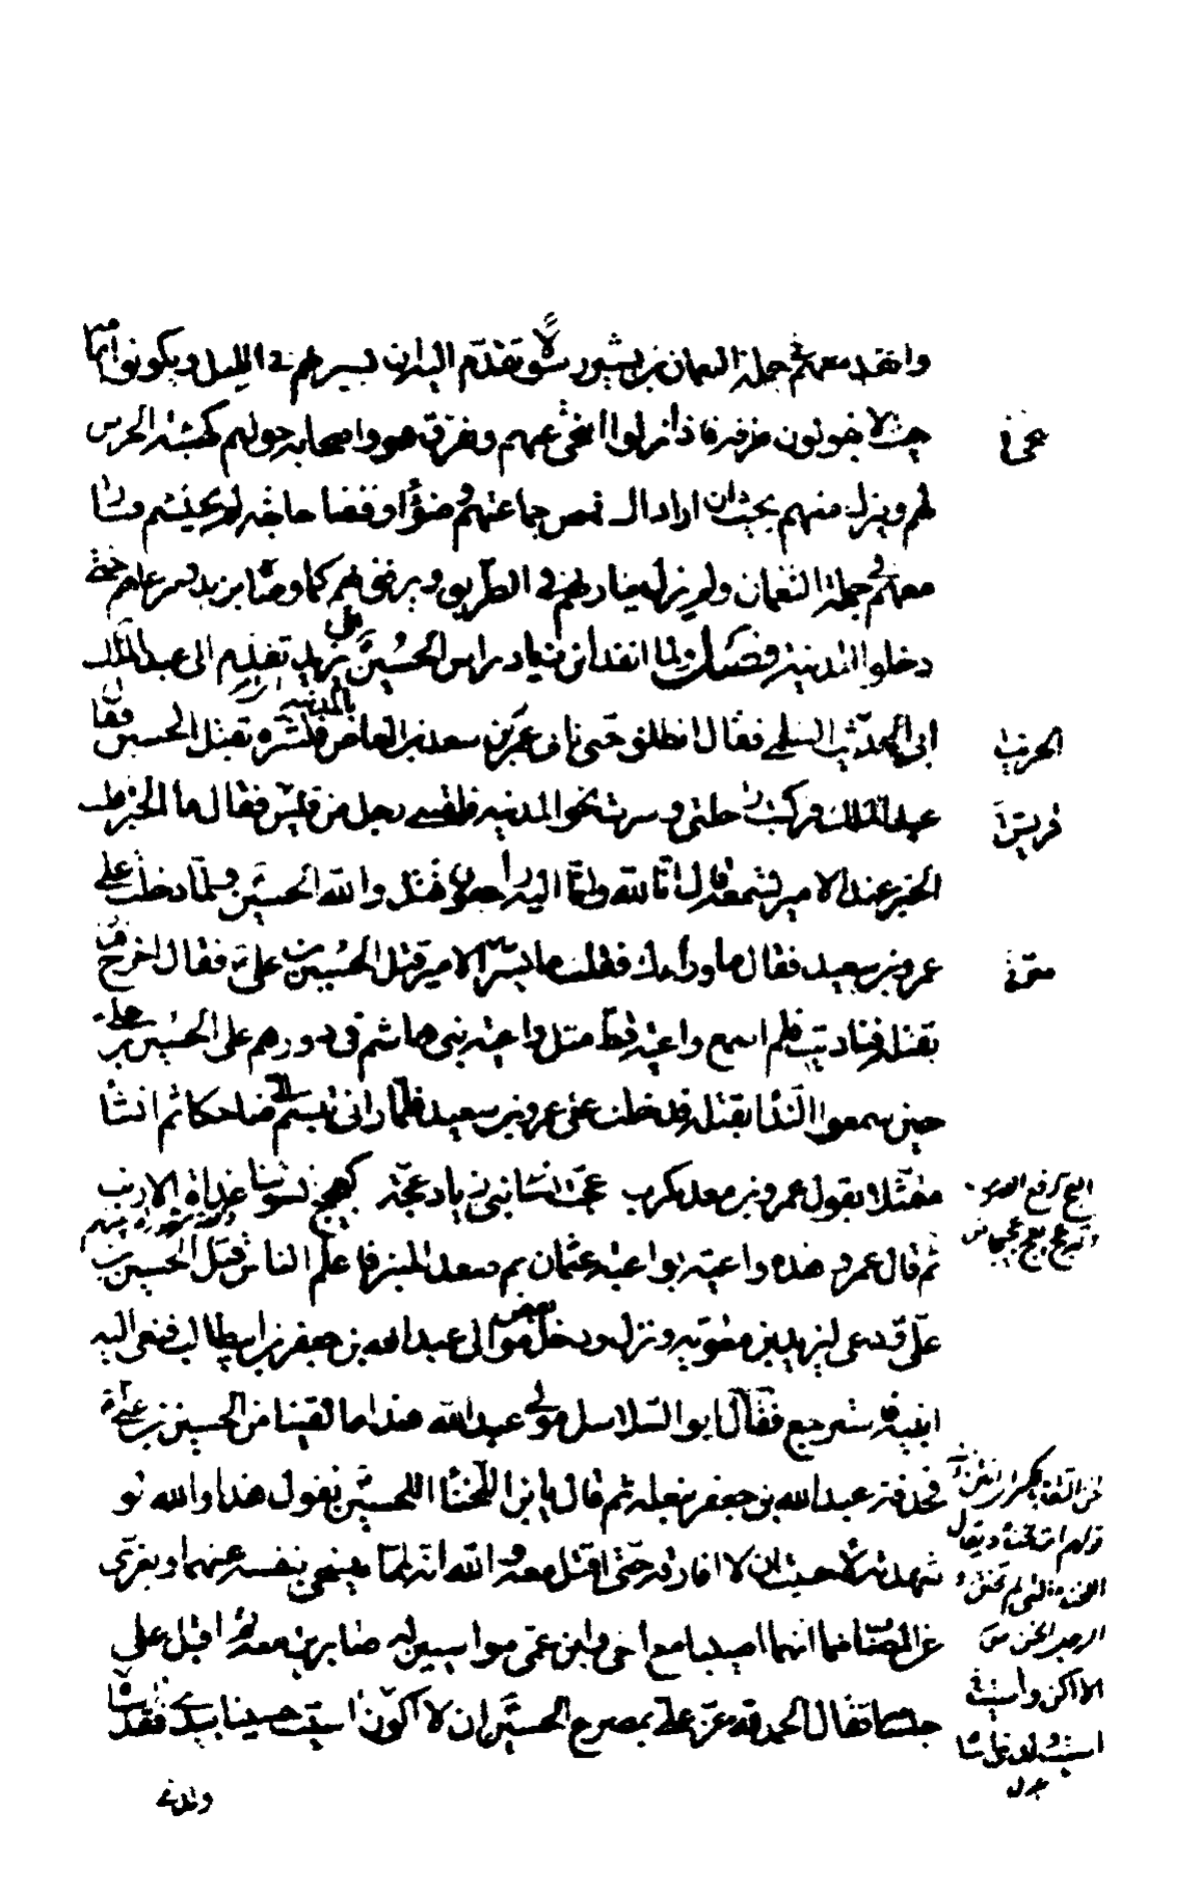 وانفذ معهم في جملة النعمان بن بشير رسولا تقدم اليه ان يسير بهم في الليل ويكونوا امامه
حيث لا يفوتون طرفه فاذا نزلوا انتحى عنهم وتفرق هو واصحابه حولهم كهيئة الحرس
لهم وينزل منهم بحيث ان اراد انسان من جماعتهم وضوءا او قضاء حاجة لم يحتشم وسار
معهم في جملة النعمان ولم يزل ينازلهم في الطريق ويرفق بهم كما وصاه يزيد لعنه ويرعاهم حتى
دخلوا المدينة فصل ولما انفذ ابن زياد براس الحسين الى يزيد تقدم الى عبد الملك
ابن ابي الحديث السلمي فقال انطلق حتى تاتي عمرو بن سعيد بن العاص بالمدينة فبشره بقتل الحسين فقال
عبد الملك فركبت راحلتي وسرت نحو المدينة فلقيني رجل من قريش فقال ما الخبر فقلت
الخبر عند الامير تسمعه قال انا لله وانا اليه راجعون قتل والله الحسين ولما دخلت على
عمرو بن سعيد فقال ما وراءك فقلت ما يسر الامير قتل الحسين بن علي فقال اخرج فناد
بقتله فناديت فلم اسمع واعية قط مثل واعية بني هاشم في دورهم على الحسين بن علي
حين سمعوا النداء بقتله فدخلت على عمرو بن سعيد فلما راني تبسم الي ضاحكا ثم انشا
متمثلا بقول عمرو بن معديكرب عجت نساء بني زياد عجة كعجيج نسوتنا غداة الارنب
ثم قال عمرو هذه واعية بواعية عثمان ثم صعد المنبر فاعلم الناس قتل الحسين بن
علي ودعى ليزيد بن معوية ونزل ودخل بعض موالي عبد الله بن جعفر بن ابيطالب فنعى اليه
ابنيه فاسترجع فقال ابو السلاسل مولى عبد الله هذا ما لقينا من الحسين بن علي
فحذفه عبد الله بن جعفر بنعله ثم قال يا بن اللخناء اللحسين تقول هذا والله لو
شهدته لاحببت ان لا افارقه حتى اقتل معه والله انه لمما يسخي بنفسي عنهما ويعزي
عن المصاب بهما انهما اصيبا مع اخي وابن عمي مواسيين له صابرين معه ثم اقبل على
جلسائه فقال الحمد لله عز علي بمصرع الحسين ان لا اكون اسيت حسينا بيدي فقد اساه
ولدي
الحرث
قريش